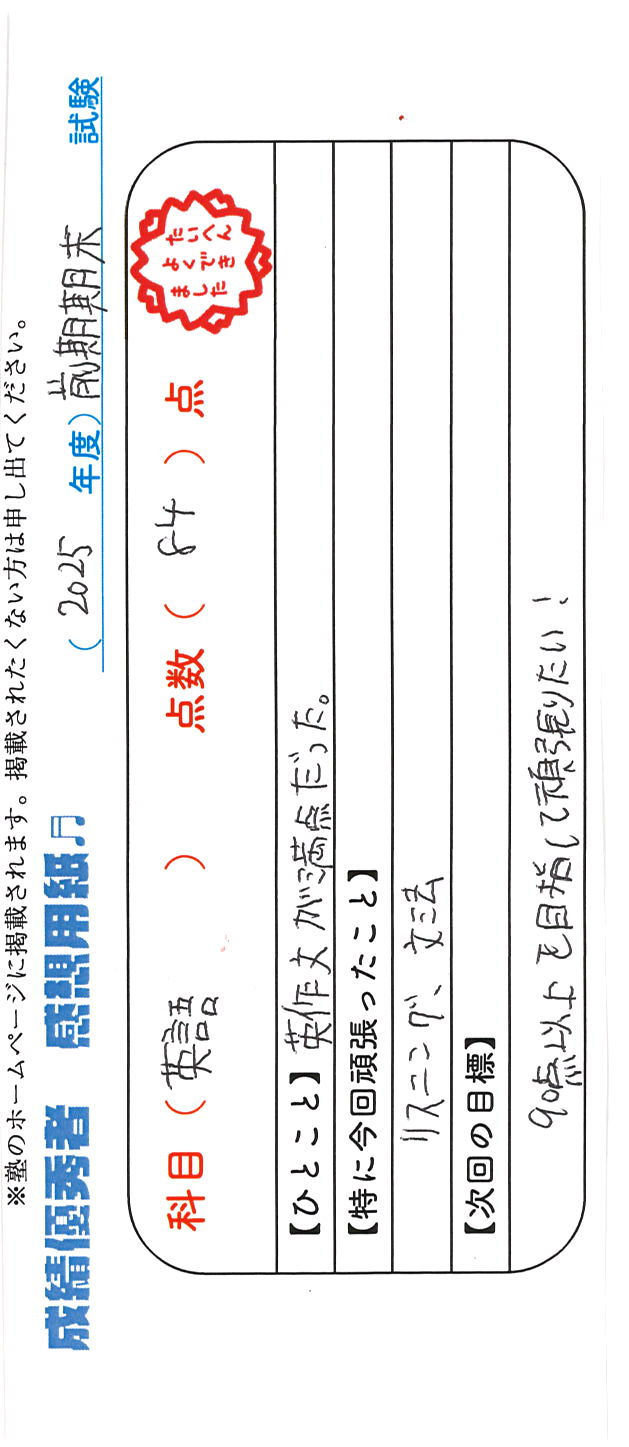 ※塾のホームページに掲載されます。掲載されたくない方は申し出てください。
成績優秀者 感想用紙♫
(2025 年度) 前期期末 試験
科目(英語) 点数(84)点
たいへん
よくでき
ました
【ひとこと】英作文が満点だった。
【特に今回頑張ったこと】
リスニング、文法
【次回の目標】
90点以上を目指して頑張りたい!